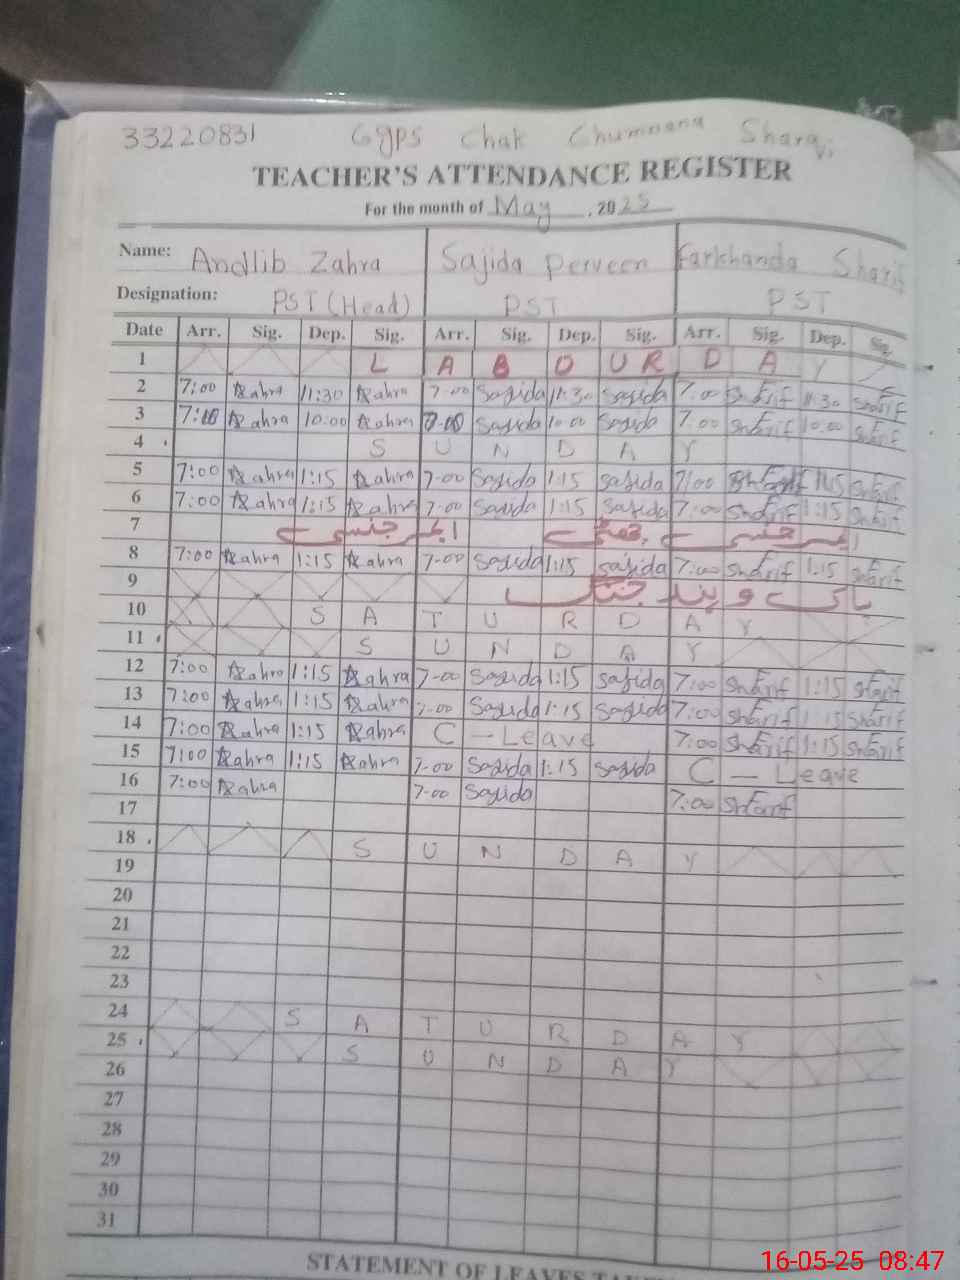 33220831 Ggps Chak Chumnana Sharqi
TEACHER'S ATTENDANCE REGISTER
For the month of May, 2025
Name: Andlib Zahra Sajida Perveen Farkhanda Sharif
Designation: PST (Head) PST PST
Date Arr. Sig. Dep. Sig. Arr. Sig. Dep. Sig. Arr. Sig. Dep. Sig.
1 L A B O U R D A Y
2 7:00 Zahra 11:30 Zahra 7-00 Sajida 11:30 Sajida 7:00 Sharif 11:30 Sharif
3 7:00 Zahra 10:00 Zahra 7:00 Sajida 10:00 Sajida 7:00 Sharif 10:00 Sharif
4 S U N D A Y
5 7:00 Zahra 1:15 Zahra 7-00 Sajida 1:15 Sajida 7:00 Sharif 1:15 Sharif
6 7:00 Zahra 1:15 Zahra 7-00 Sajida 1:15 Sajida 7:00 Sharif 1:15 Sharif
7 ایمرجنسی چھٹی ایمرجنسی
8 7:00 Zahra 1:15 Zahra 7-00 Sajida 1:15 Sajida 7:00 Sharif 1:15 Sharif
9 پاک و ہند جنگ
10 S A T U R D A Y
11 S U N D A Y
12 7:00 Zahra 1:15 Zahra 7-00 Sajida 1:15 Sajida 7:00 Sharif 1:15 Sharif
13 7:00 Zahra 1:15 Zahra 7-00 Sajida 1:15 Sajida 7:00 Sharif 1:15 Sharif
14 7:00 Zahra 1:15 Zahra C - Leave 7:00 Sharif 1:15 Sharif
15 7:00 Zahra 1:15 Zahra 7-00 Sajida 1:15 Sajida C - Leave
16 7:00 Zahra 7-00 Sajida 7:00 Sharif
17
18 S U N D A Y
19
20
21
22
23
24 S A T U R D A Y
25 S U N D A Y
26
27
28
29
30
31
STATEMENT OF LEAVES
16-05-25 08:47